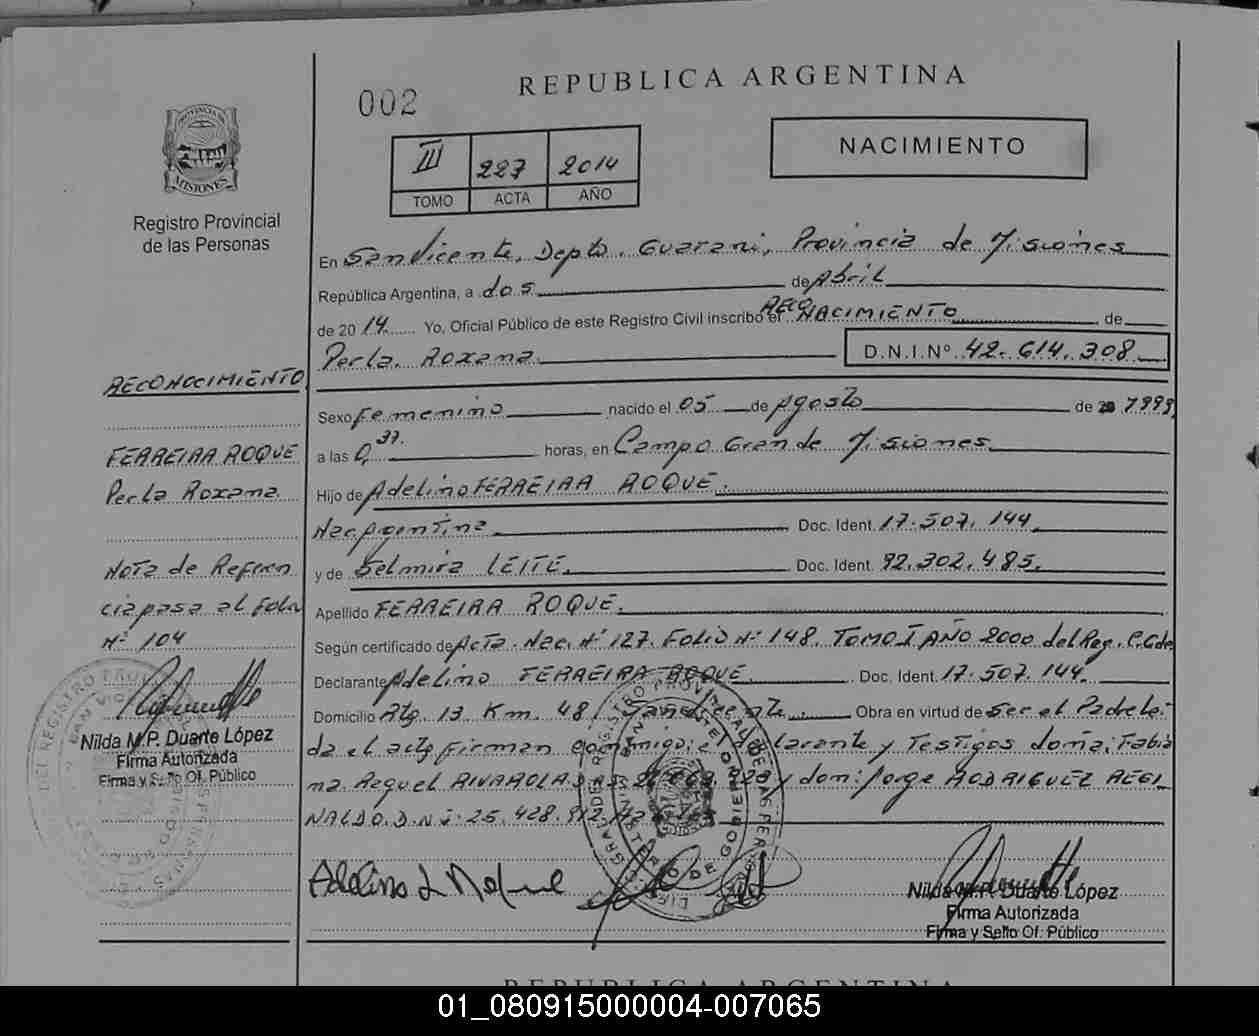 002
REPUBLICA ARGENTINA
PROVINCIA DE
MISIONES
Registro Provincial
de las Personas
III 227 2014
TOMO ACTA AÑO
NACIMIENTO
En San Vicente, Depto. Guarani, Provincia de Misiones
República Argentina, a dos de Abril
de 2014 Yo, Oficial Público de este Registro Civil inscribo el RECONACIMIENTO de
Perla Roxana D.N.I.Nº 42.614.308
Sexo Femenino nacido el 05 de Agosto de 1999
a las 0,37 horas, en Campo Grande Misiones
Hijo de Adelino FERREIRA ROQUE.
Nac. Argentina Doc. Ident. 17.507.144
y de Selmira LEITE. Doc. Ident. 92.302.485.
Apellido FERREIRA ROQUE.
Según certificado de Acta. Nac. Nº 127. Folio Nº 148. TOMO I AÑO 2000 del Reg. C.Gde
Declarante Adelino FERREIRA ROQUE. Doc. Ident. 17.507.144
Domicilio Rta. 13 Km. 48 San Vicente. Obra en virtud de Ser el Padre Leí
da el acta firman conmigo el declarante y Testigos doña: Fabia
na Raquel RIVAROLA y don: Jorge RODRIGUEZ REGI
NALDO. D.N.I. 25.428.912
RECONOCIMIENTO
FERREIRA ROQUE
Perla Roxana
Nota de Referen
cia pasa al folio
Nº 104
Nilda M.P. Duarte López
Firma Autorizada
Firma y Sello Of. Público
Nilda M.P. Duarte López
Firma Autorizada
Firma y Sello Of. Público
REPUBLICA ARGENTINA
01_080915000004-007065